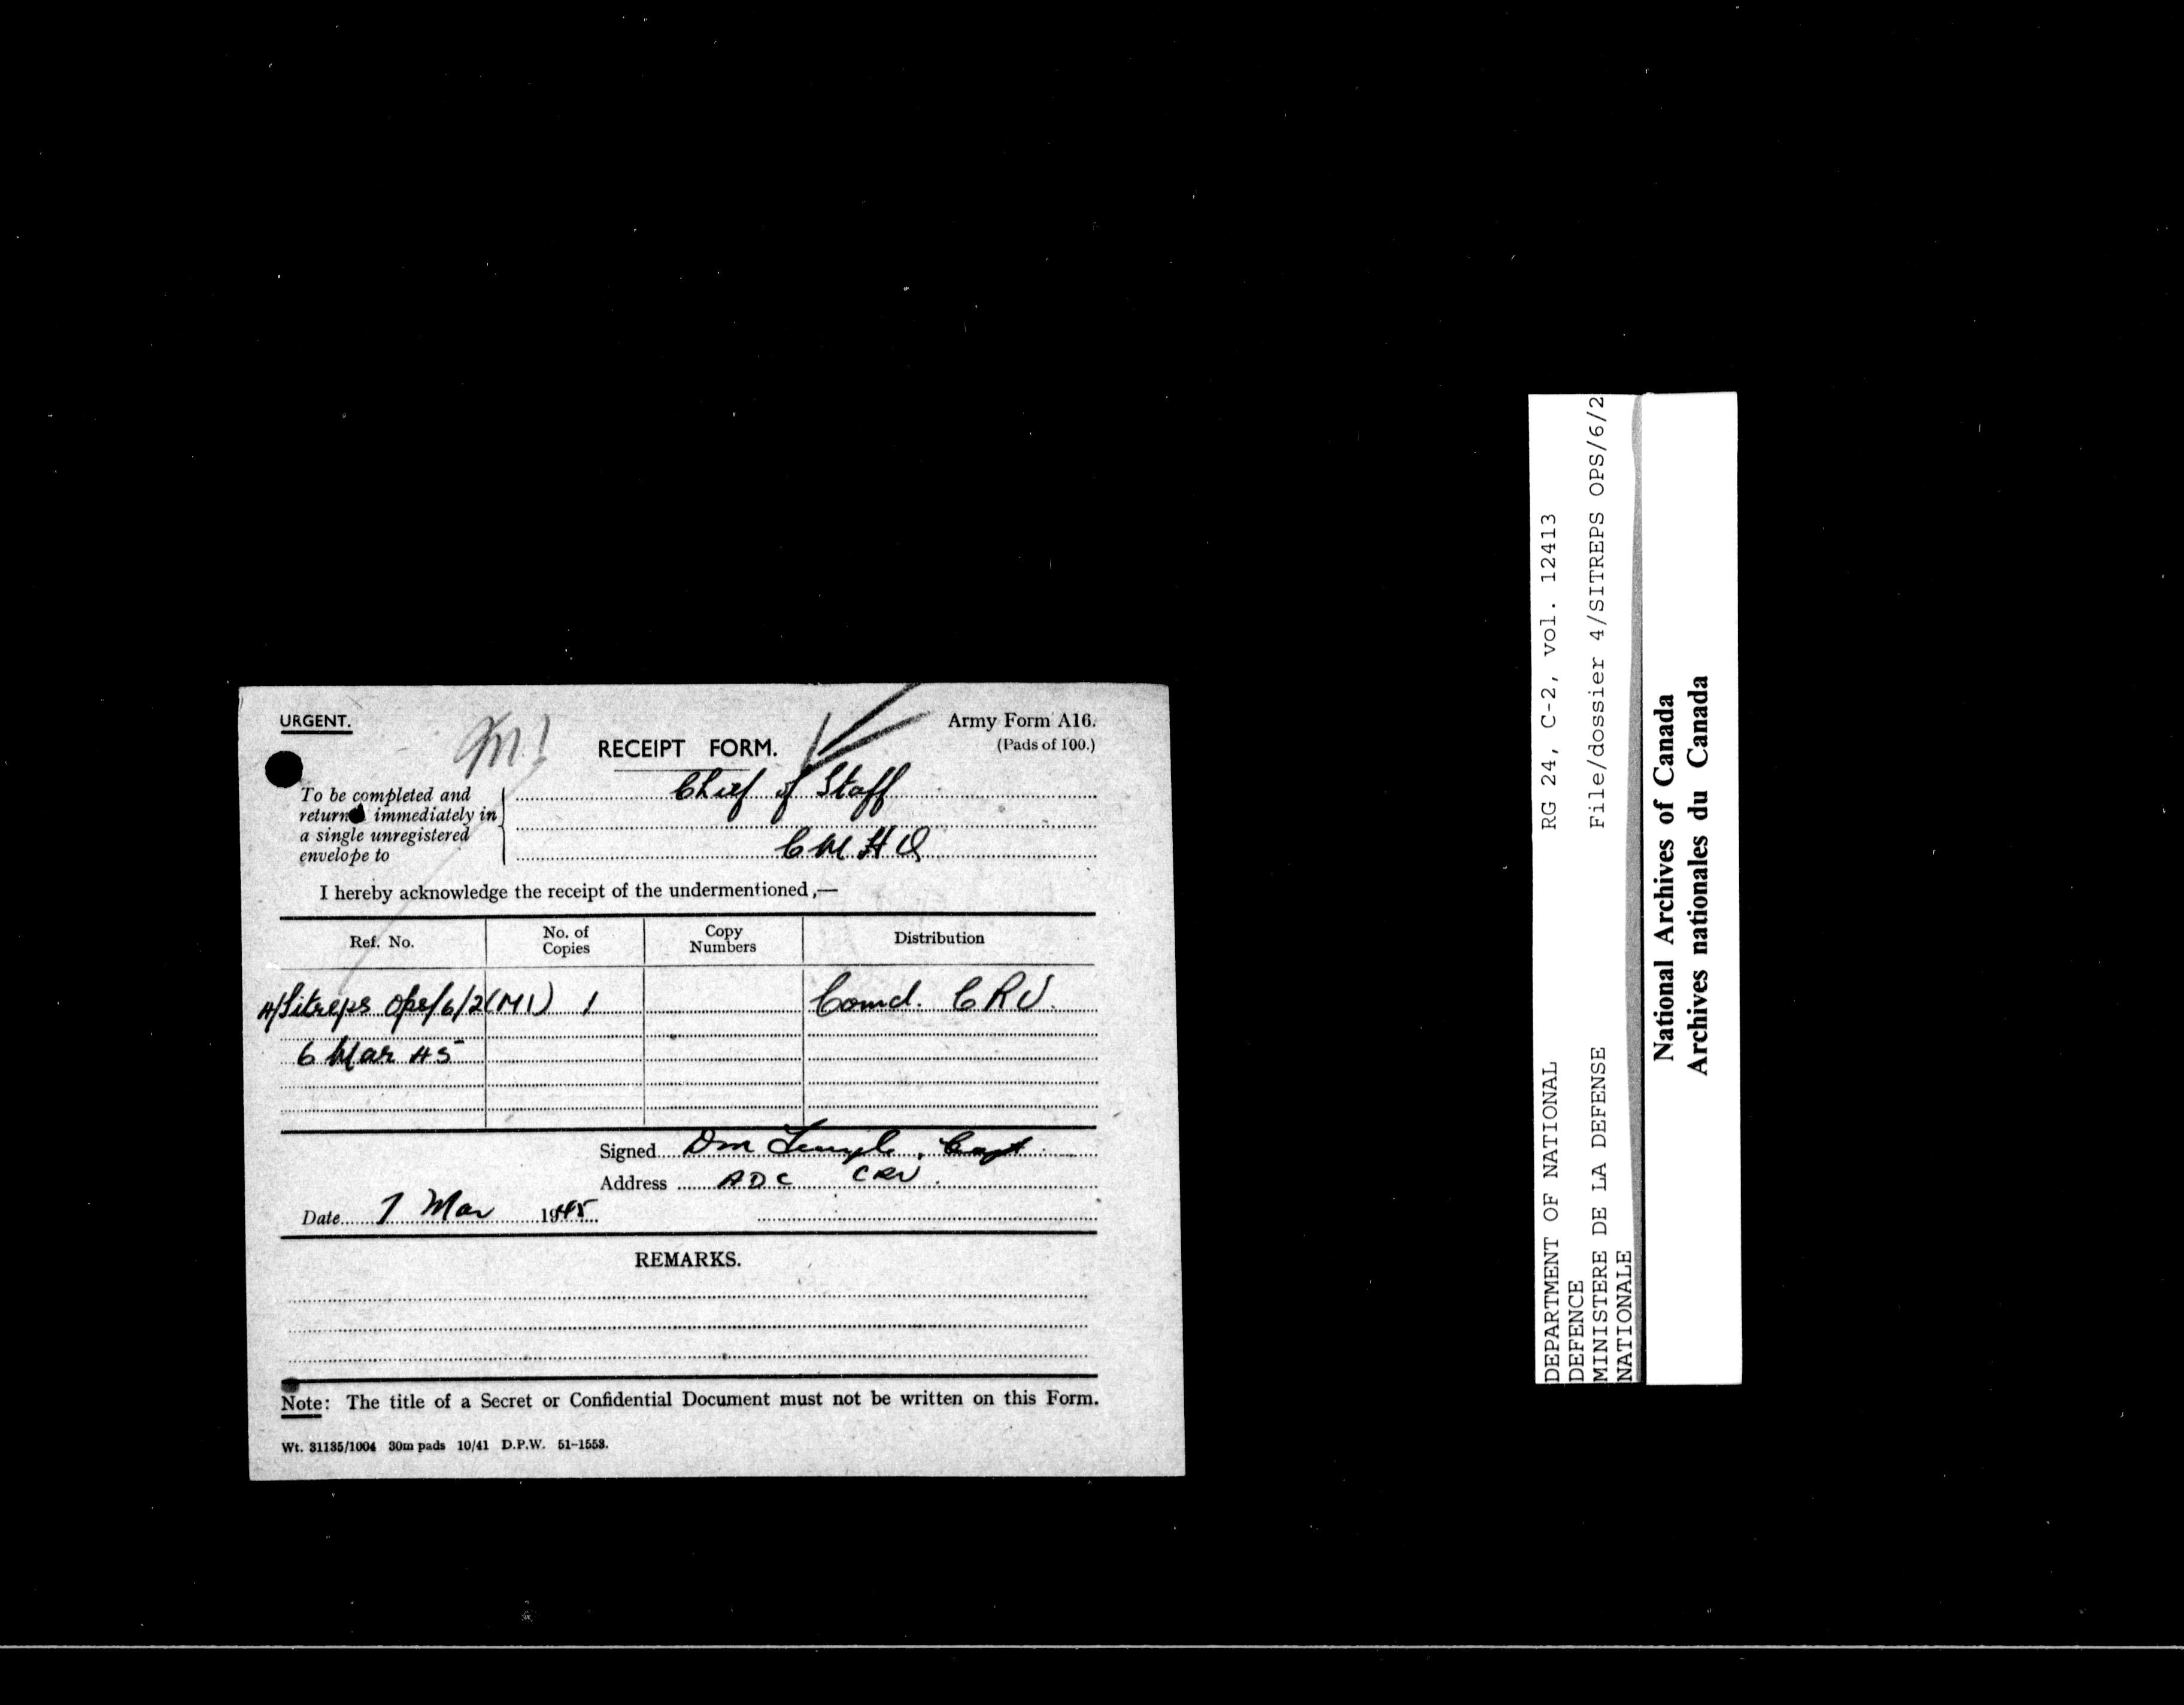 URGENT.
Army Form A16.
(Pads of 100.)
RECEIPT FORM.
To be completed and
returned immediately in
a single unregistered
envelope to
Chief of Staff
CMHQ
I hereby acknowledge the receipt of the undermentioned,—
Ref. No. No. of Copies Copy Numbers Distribution
4/Sitreps Ops/6/2(MI) 1 Comd. CRU.
6 Mar 45
Signed Capt
Address ADC CRU.
Date 7 Mar 1945
REMARKS.
Note: The title of a Secret or Confidential Document must not be written on this Form.
Wt. 31135/1004 30m pads 10/41 D.P.W. 51-1553.
DEPARTMENT OF NATIONAL
DEFENCE
MINISTERE DE LA DEFENSE
NATIONALE
RG 24, C-2, vol. 12413
File/dossier 4/SITREPS OPS/6/2
National Archives of Canada
Archives nationales du Canada